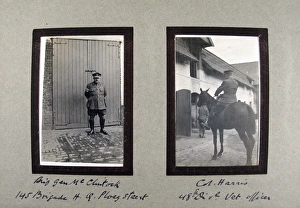 Brig Gen McClintock
145 Brigade H. Q. Ploegsteert
Col. Harris
48th Div. Vet officer